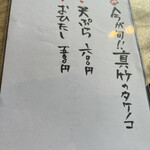 今が旬!!真竹のタケノコ
・天ぷら 六〇〇円
・おひたし 五〇〇円